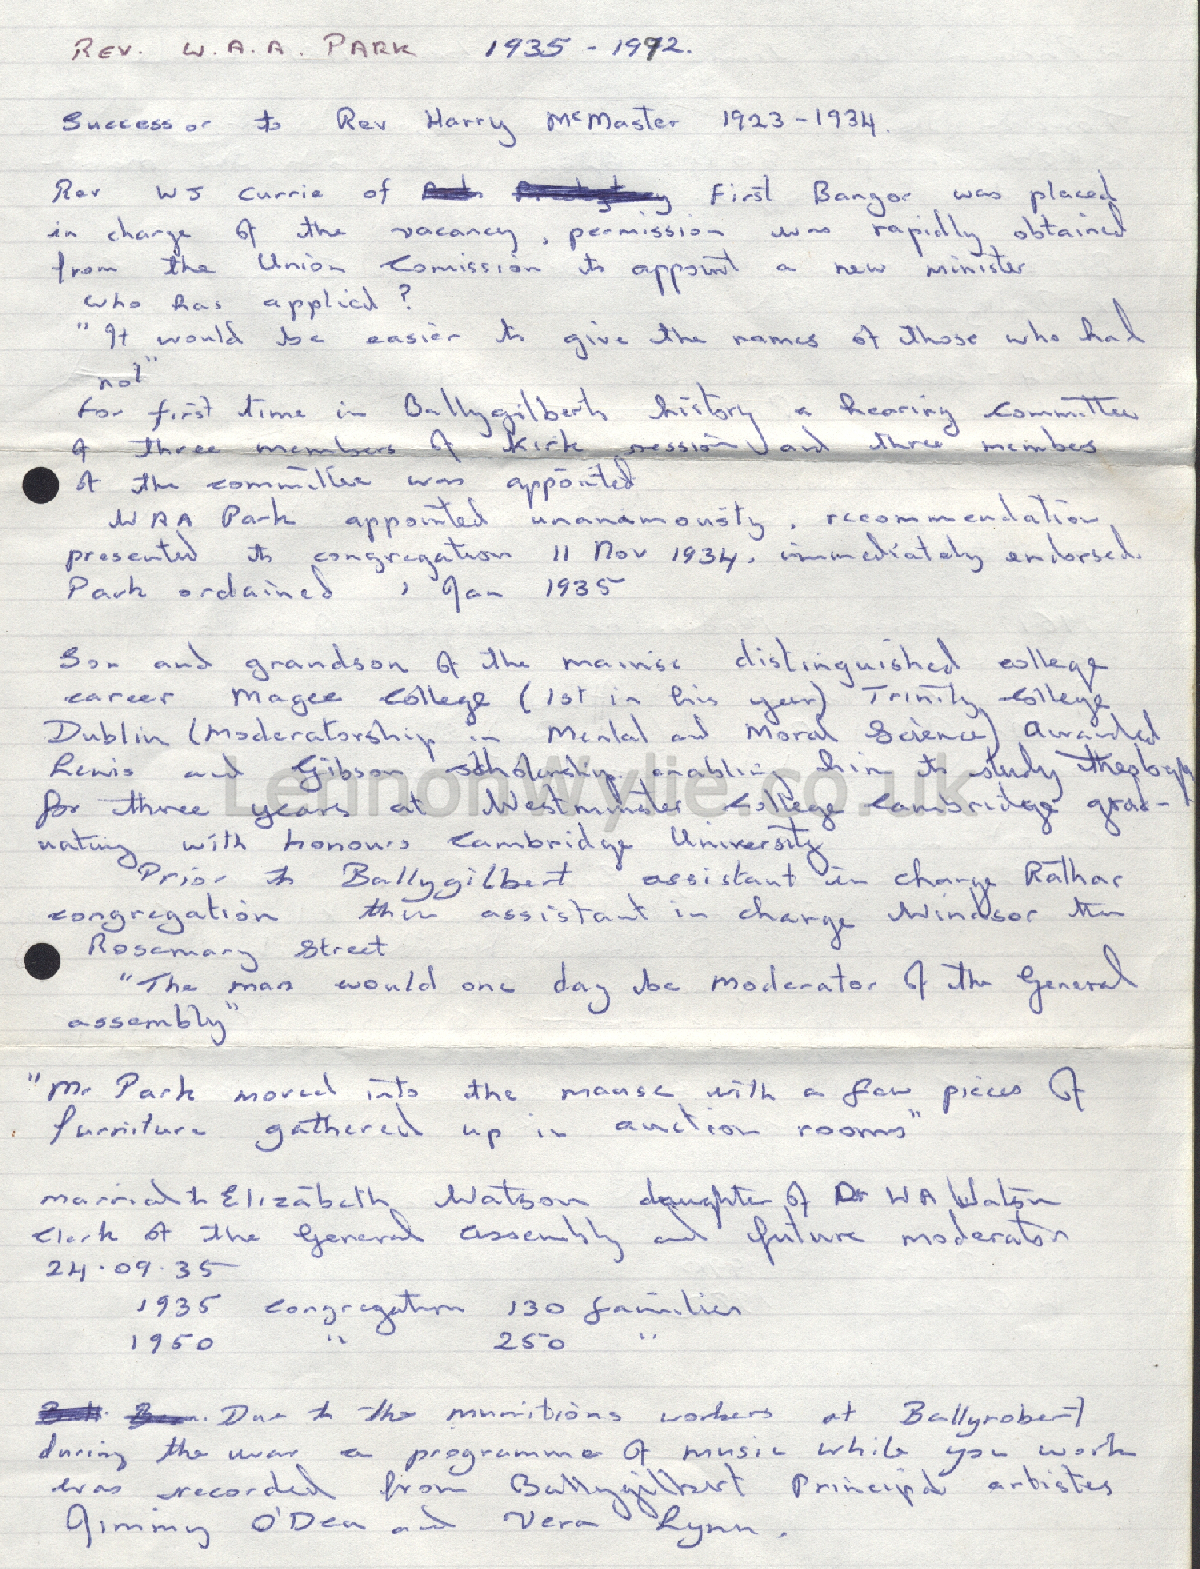 REV. W.A.A. PARK 1935 - 1972.
Successor to Rev Harry McMaster 1923-1934.
Rev WJ Currie of First Bangor was placed
in charge of the vacancy, permission was rapidly obtained
from the Union Comission to appoint a new minister
who has applied?
"It would be easier to give the names of those who had
not"
For first time in Ballygilberts history a hearing committee
of three members of Kirk session and three members
of the committee was appointed
WAA Park appointed unanamously, recommendation,
presented to congregation 11 Nov 1934, immediately endorsed.
Park ordained 1 Jan 1935
Son and grandson of the mainse distinguished college
career Magee College (1st in his year) Trinity College
Dublin (Moderatorship in Mental and Moral Science) Awarded
Lewis and Gibson scholarship enabling him to study theology
for three years at Westminster College Cambridge grad-
uating with honours Cambridge University
Prior to Ballygilbert assistant in charge Rathar
congregation then assistant in charge Windsor then
Rosemary Street
"The man would one day be moderator of the General
assembly"
"Mr Park moved into the manse with a few pieces of
furniture gathered up in auction rooms"
married to Elizabeth Watson daughter of Dr WA Watson
Clerk of the General Assembly and future moderator
24.09.35
1935 congregation 130 families
1950 " 250 "
Due to the munitions workers at Ballyrobert
during the war a programme of music while you work
was recorded from Ballygilbert Principal artistes
Jimmy O'Dea and Vera Lynn.
LennonWylie.co.uk